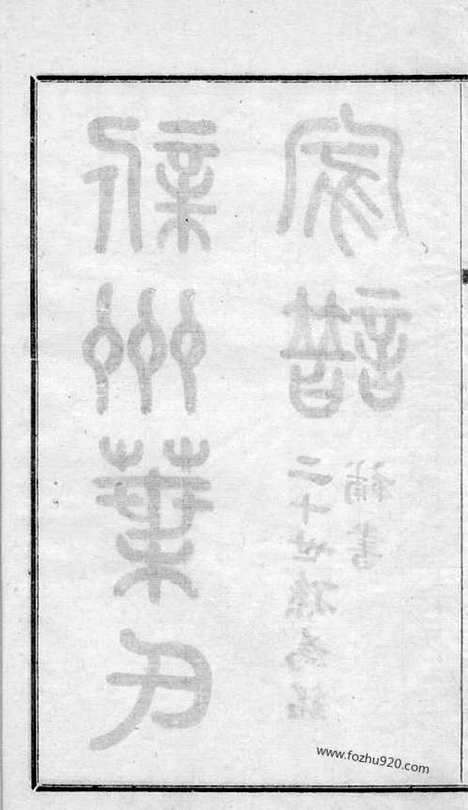 新州葉氏
家譜
二十世孫為銘
補書
www.fozhu920.com